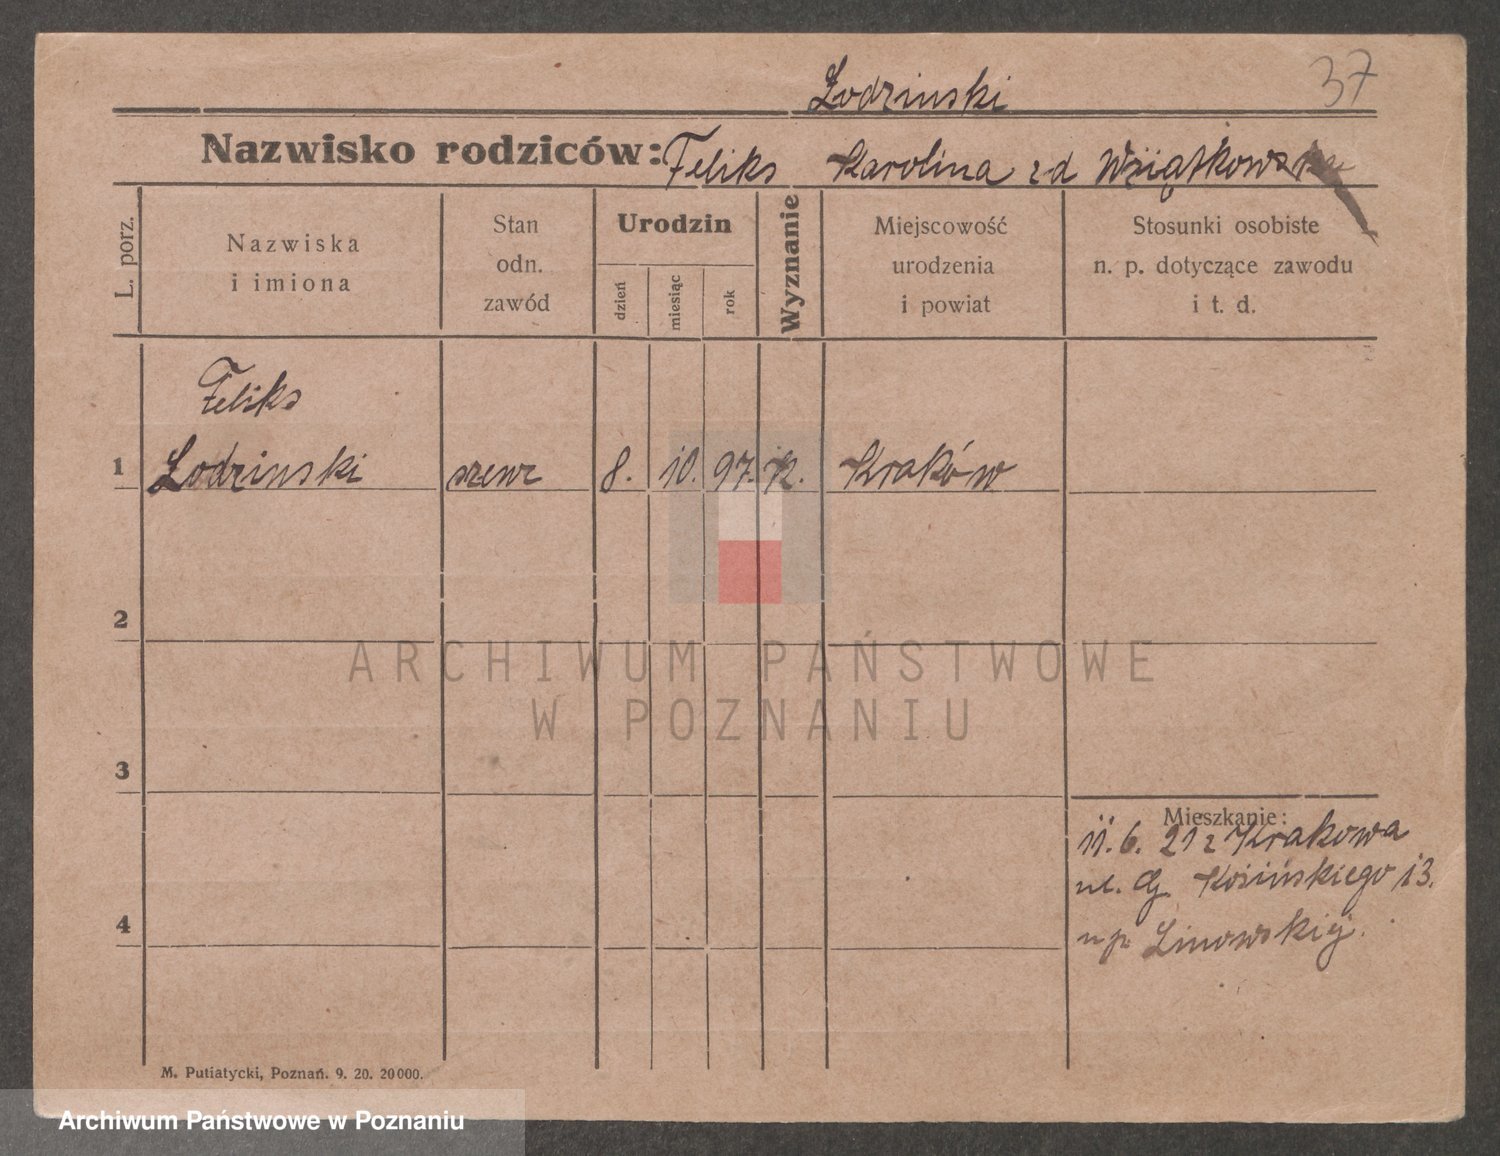 37
Łodzinski
Nazwisko rodziców: Feliks Karolina zd
L. porz.
Nazwiska
i imiona
Stan
odn.
zawód
Urodzin
dzień
miesiąc
rok
Wyznanie
Miejscowość
urodzenia
i powiat
Stosunki osobiste
n. p. dotyczące zawodu
i t. d.
Feliks
1 Łodzinski szewc 8. 10. 97. K. Kraków
2
3
4
Mieszkanie:
11. 6. 21 z Krakowa
ul. Kosińskiego 13.
u p. Linowskiej.
M. Putiatycki, Poznań. 9. 20. 20000.
ARCHIWUM PAŃSTWOWE
W POZNANIU
Archiwum Państwowe w Poznaniu